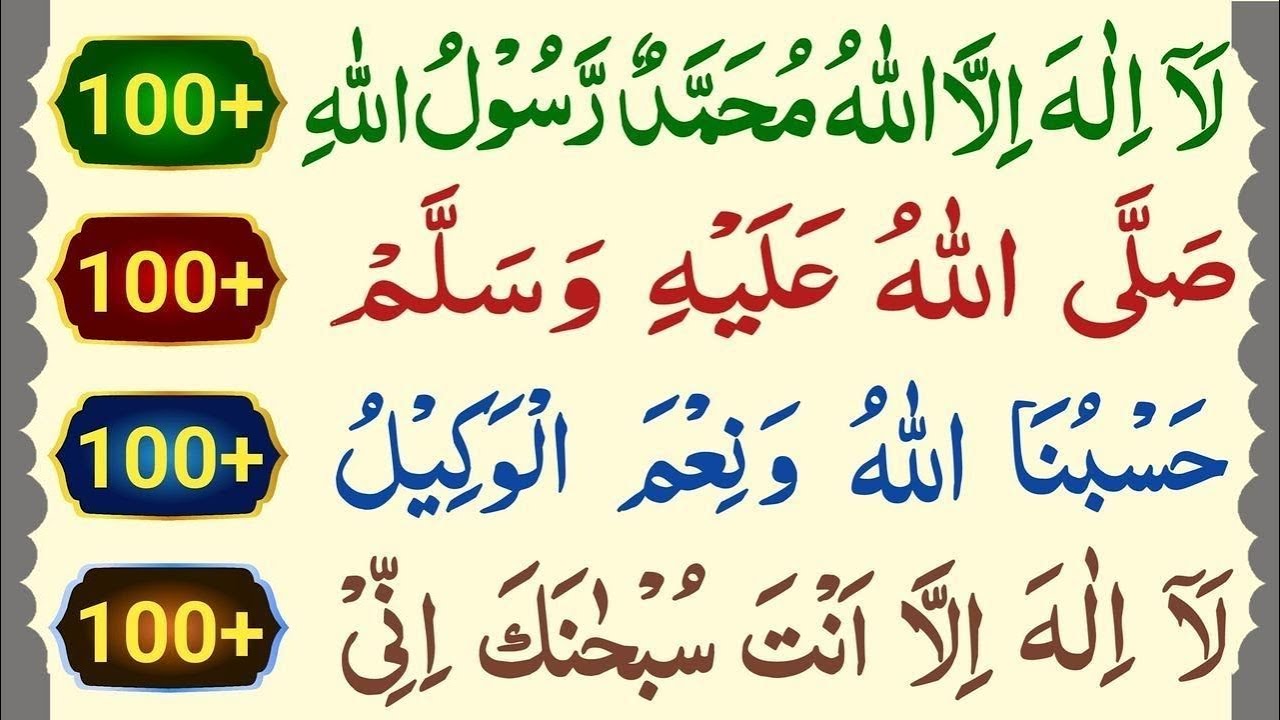 لَآ اِلٰهَ اِلَّا اللّٰهُ مُحَمَّدٌ رَّسُوْلُ اللّٰهِ 100+
صَلَّى اللّٰهُ عَلَيْهِ وَسَلَّمْ 100+
حَسْبُنَا اللّٰهُ وَنِعْمَ الْوَكِيْلُ 100+
لَآ اِلٰهَ اِلَّا اَنْتَ سُبْحٰنَكَ اِنِّىْ 100+